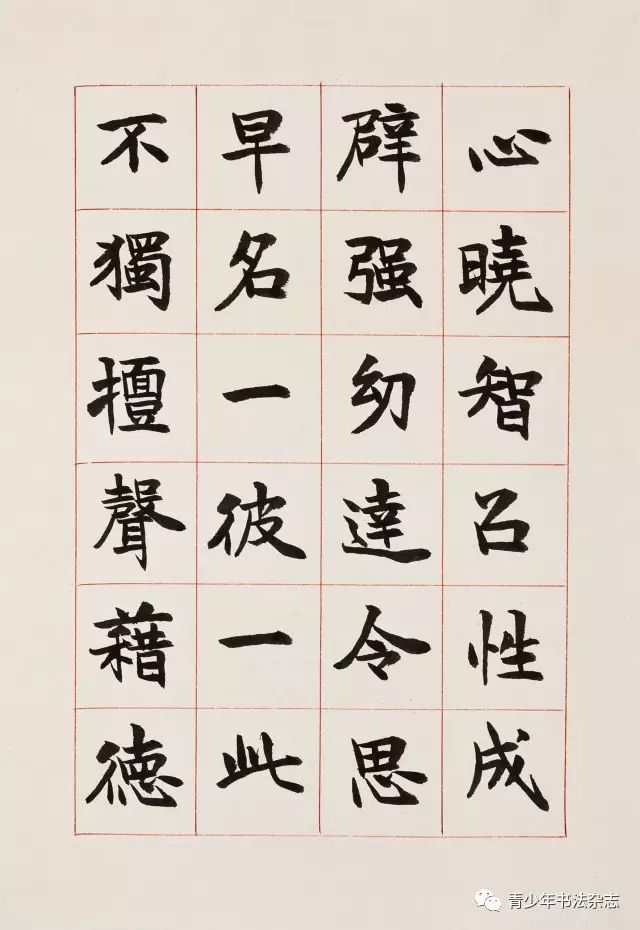 心曉智召性成
辟强幼達令思
早名一彼一此
不獨擅聲藉德
青少年书法杂志